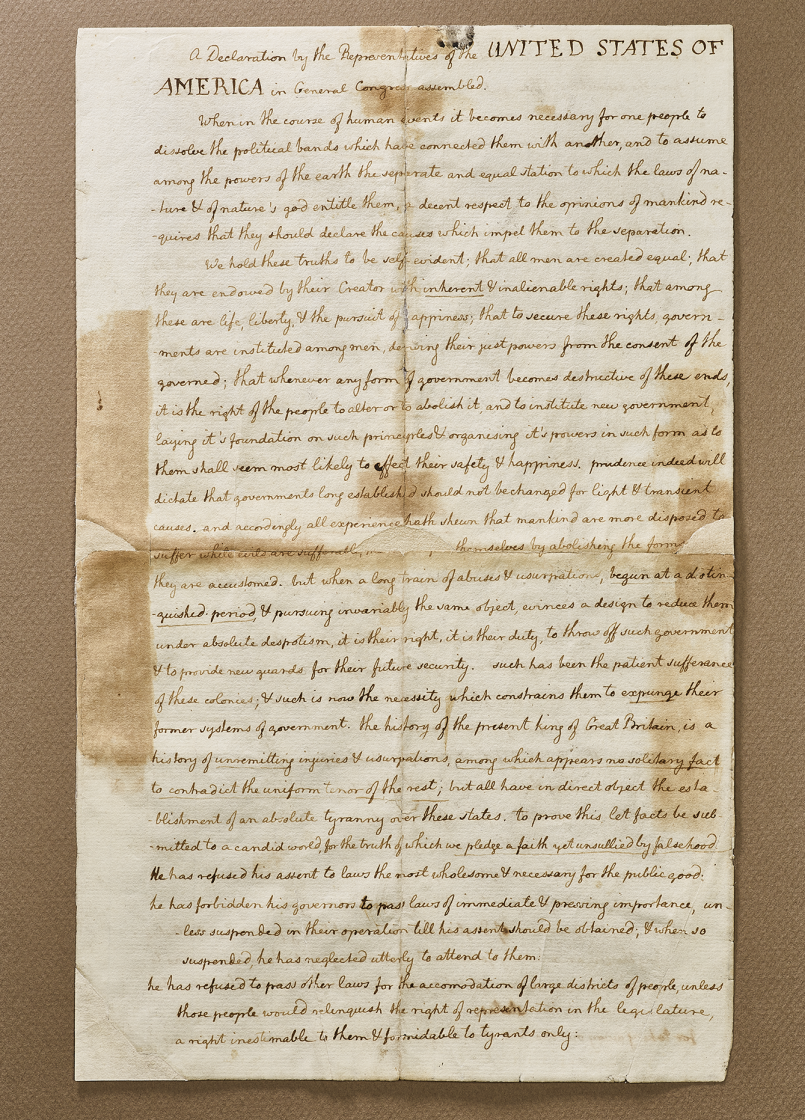 A Declaration by the Representatives of the UNITED STATES OF
AMERICA in General Congress assembled.
When in the course of human events it becomes necessary for one people to
dissolve the political bands which have connected them with another, and to assume
among the powers of the earth the separate and equal station to which the laws of na-
-ture & of nature's god entitle them, a decent respect to the opinions of mankind re-
-quires that they should declare the causes which impel them to the separation.
We hold these truths to be self-evident; that all men are created equal; that
they are endowed by their Creator with inherent & inalienable rights; that among
these are life, liberty, & the pursuit of happiness; that to secure these rights, govern-
-ments are instituted among men, deriving their just powers from the consent of the
governed; that whenever any form of government becomes destructive of these ends,
it is the right of the people to alter or to abolish it, and to institute new government,
laying it's foundation on such principles & organising it's powers in such form as to
them shall seem most likely to effect their safety & happiness. prudence indeed will
dictate that governments long established should not be changed for light & transient
causes. and accordingly all experience hath shewn that mankind are more disposed to
suffer while evils are sufferable, themselves by abolishing the forms
they are accustomed. but when a long train of abuses & usurpations, begun at a distin-
-guished period, & pursuing invariably the same object, evinces a design to reduce them
under absolute despotism, it is their right, it is their duty, to throw off such government
& to provide new guards for their future security. such has been the patient sufferance
of these colonies; & such is now the necessity which constrains them to expunge their
former systems of government. the history of the present king of Great Britain, is a
history of unremitting injuries & usurpations, among which appears no solitary fact
to contradict the uniform tenor of the rest; but all have in direct object the esta-
-blishment of an absolute tyranny over these states. to prove this, let facts be sub-
-mitted to a candid world, for the truth of which we pledge a faith yet unsullied by falsehood.
He has refused his assent to laws the most wholesome & necessary for the public good:
he has forbidden his governors to pass laws of immediate & pressing importance, un-
-less suspended in their operation till his assent should be obtained; & when so
suspended, he has neglected utterly to attend to them:
he has refused to pass other laws for the accomodation of large districts of people, unless
those people would relinquish the right of representation in the legislature,
a right inestimable to them & formidable to tyrants only: